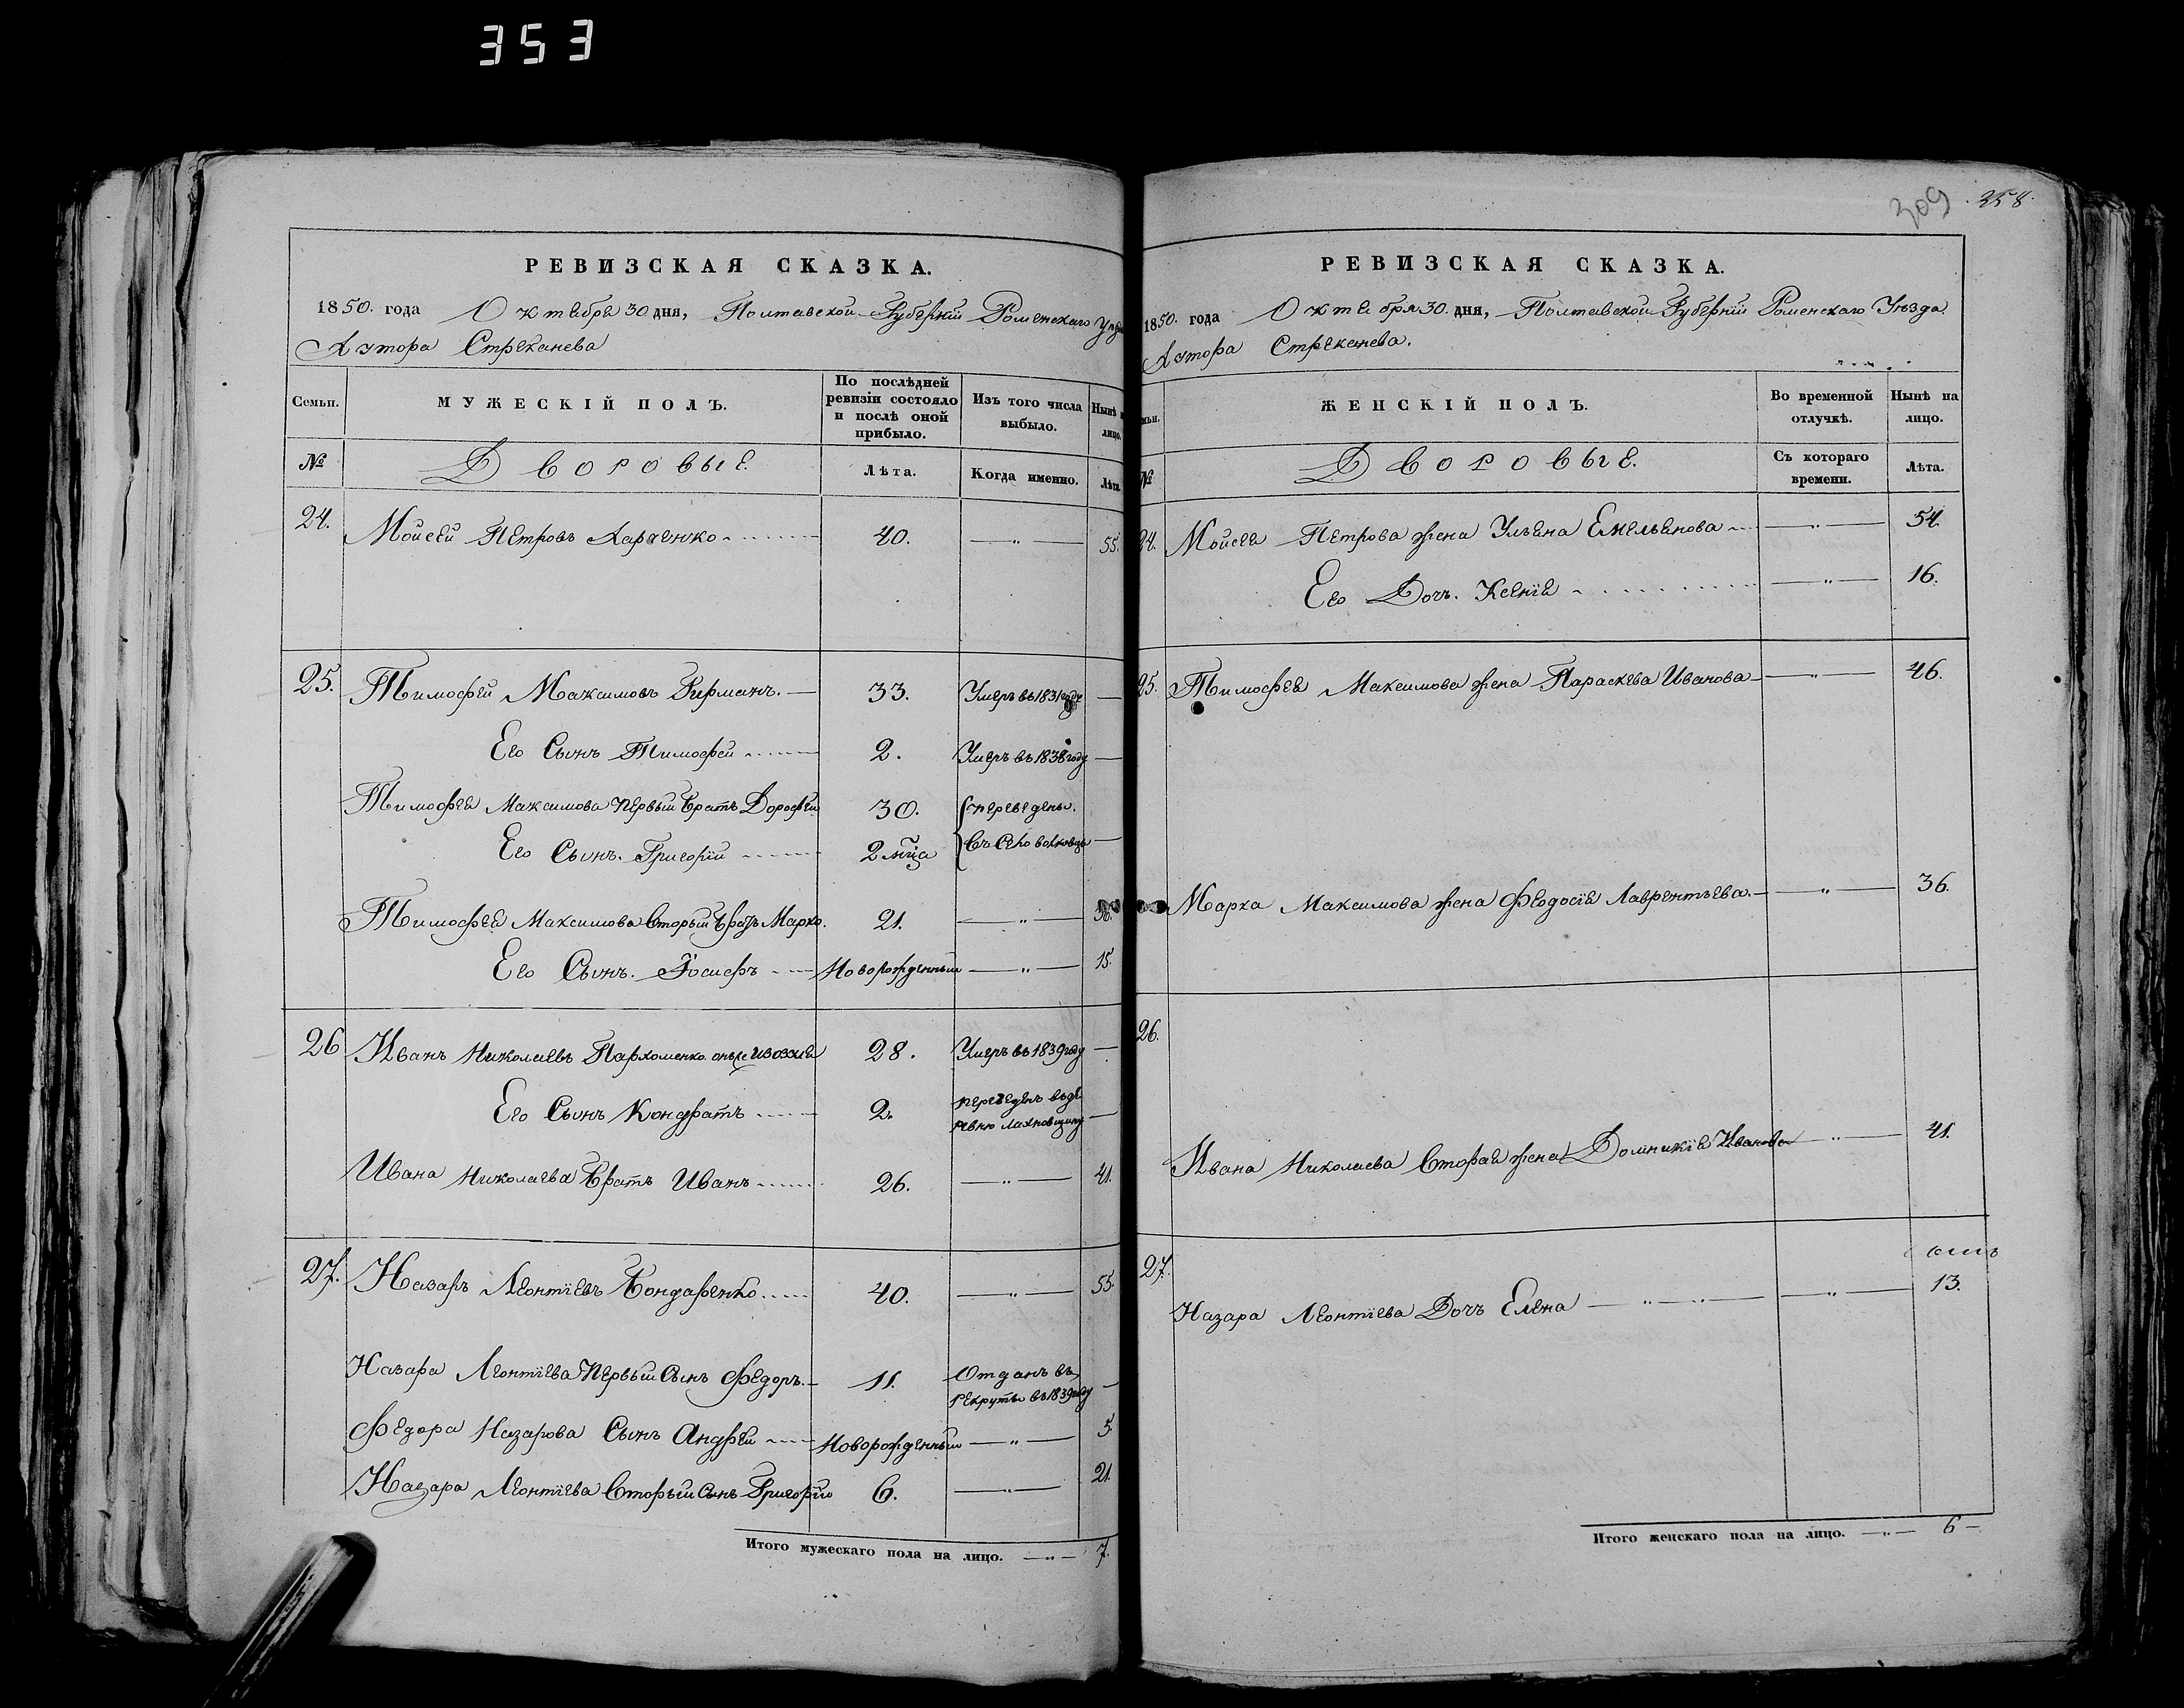 353
РЕВИЗСКАЯ СКАЗКА.
1850. года Октября 30 дня, Полтавской Губернiи Роменскаго Уѣзда
Хутора Стреканева
Семьи.
МУЖЕСКІЙ ПОЛЪ.
По послѣдней ревизіи состояло и послѣ оной прибыло.
Изъ того числа выбыло.
Нынѣ на лицо.
№
Дворовые.
Лѣта.
Когда именно.
Лѣта
24. Мойсей Петровъ Харченко 40. 55.
25. Тимофей Максимовъ Гирманъ. 33. Умеръ въ 1831 году
Его Сынъ Тимофей 2. Умеръ въ 1838 году
Тимофея Максимова первый братъ Дорофей 30. переведены.
Его Сынъ. Григорій 2 мца въ село
Тимофея Максимова вторый братъ Марко. 21. 36.
Его Сынъ. Іосифъ Новорожденный 15.
26 Иванъ Николаевъ Пархоменко 28. Умеръ въ 1839 году
Его Сынъ Кондратъ 2. переведенъ въ де
ревню Лахновщину
Ивана Николаева братъ Иванъ 26. 41.
27. Назаръ Леонтіевъ Бондаренко 40. 55.
Назара Леонтіева первый сынъ Федоръ. 11. Отданъ въ
рекруты въ 1839 году
Федора Назарова Сынъ Андрей Новорожденный 5.
Назара Леонтіева вторый сынъ Григорій 6. 21.
Итого мужескаго пола на лицо. 7.
309 358.
РЕВИЗСКАЯ СКАЗКА.
1850. года Октября 30. дня, Полтавской Губерніи Роменскаго Уѣзда
Хутора Стреканева.
ЖЕНСКІЙ ПОЛЪ.
Во временной отлучкѣ.
Нынѣ на лицо.
№
Дворовые.
Съ котораго времени.
Лѣта.
24. Мойсея Петрова жена Ульяна Емельянова 54.
Его Дочь. Ксенія 16.
25. Тимофея Максимова жена Параскева Иванова 46.
Марка Максимова жена Феодосія Лаврентьева. 36.
26.
Ивана Николаева вторая жена Домникія Иванова 41.
27.
Назара Леонтіева Дочь Елена 13.
Итого женскаго пола на лицо. 6